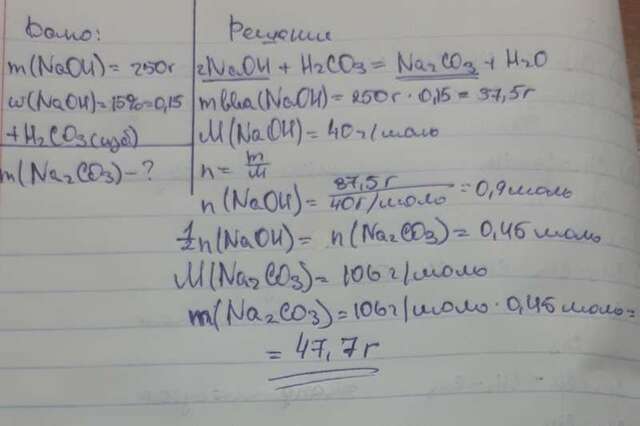 Дано:
m(NaOH) = 250г
w(NaOH)=15%=0,15
+H₂CO₃(изб)
m(Na₂CO₃) - ?
Решение
2NaOH + H₂CO₃ = Na₂CO₃ + H₂O
mв-ва(NaOH)=250г · 0,15 = 37,5г
M(NaOH)= 40г/моль
n = m/M
n(NaOH)= 37,5г/40г/моль = 0,9моль
½n(NaOH)= n(Na₂CO₃)= 0,45 моль
M(Na₂CO₃)= 106г/моль
m(Na₂CO₃)=106г/моль · 0,45 моль=
= 47,7г